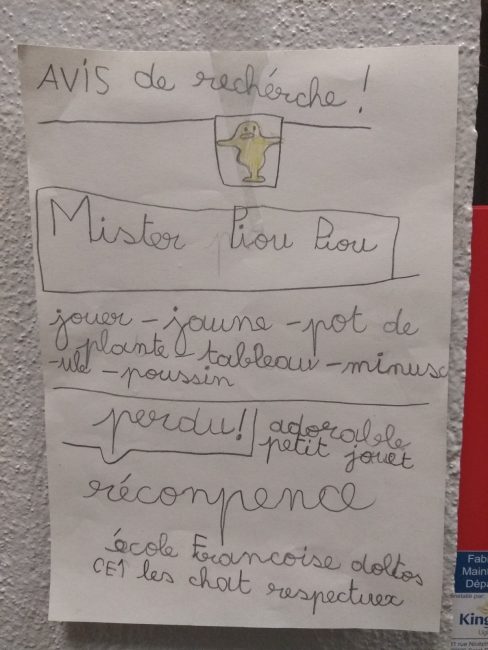 AVIS de rechérche !
Mister Piou Piou
jouer - jaune - pot de
plante - tableau - minusc
-ule - poussin
perdu!
adorable
petit jouet
réconpence
école Francoise doltos
CE1 les chat respectuex
Fab
Maint
Dépa
King